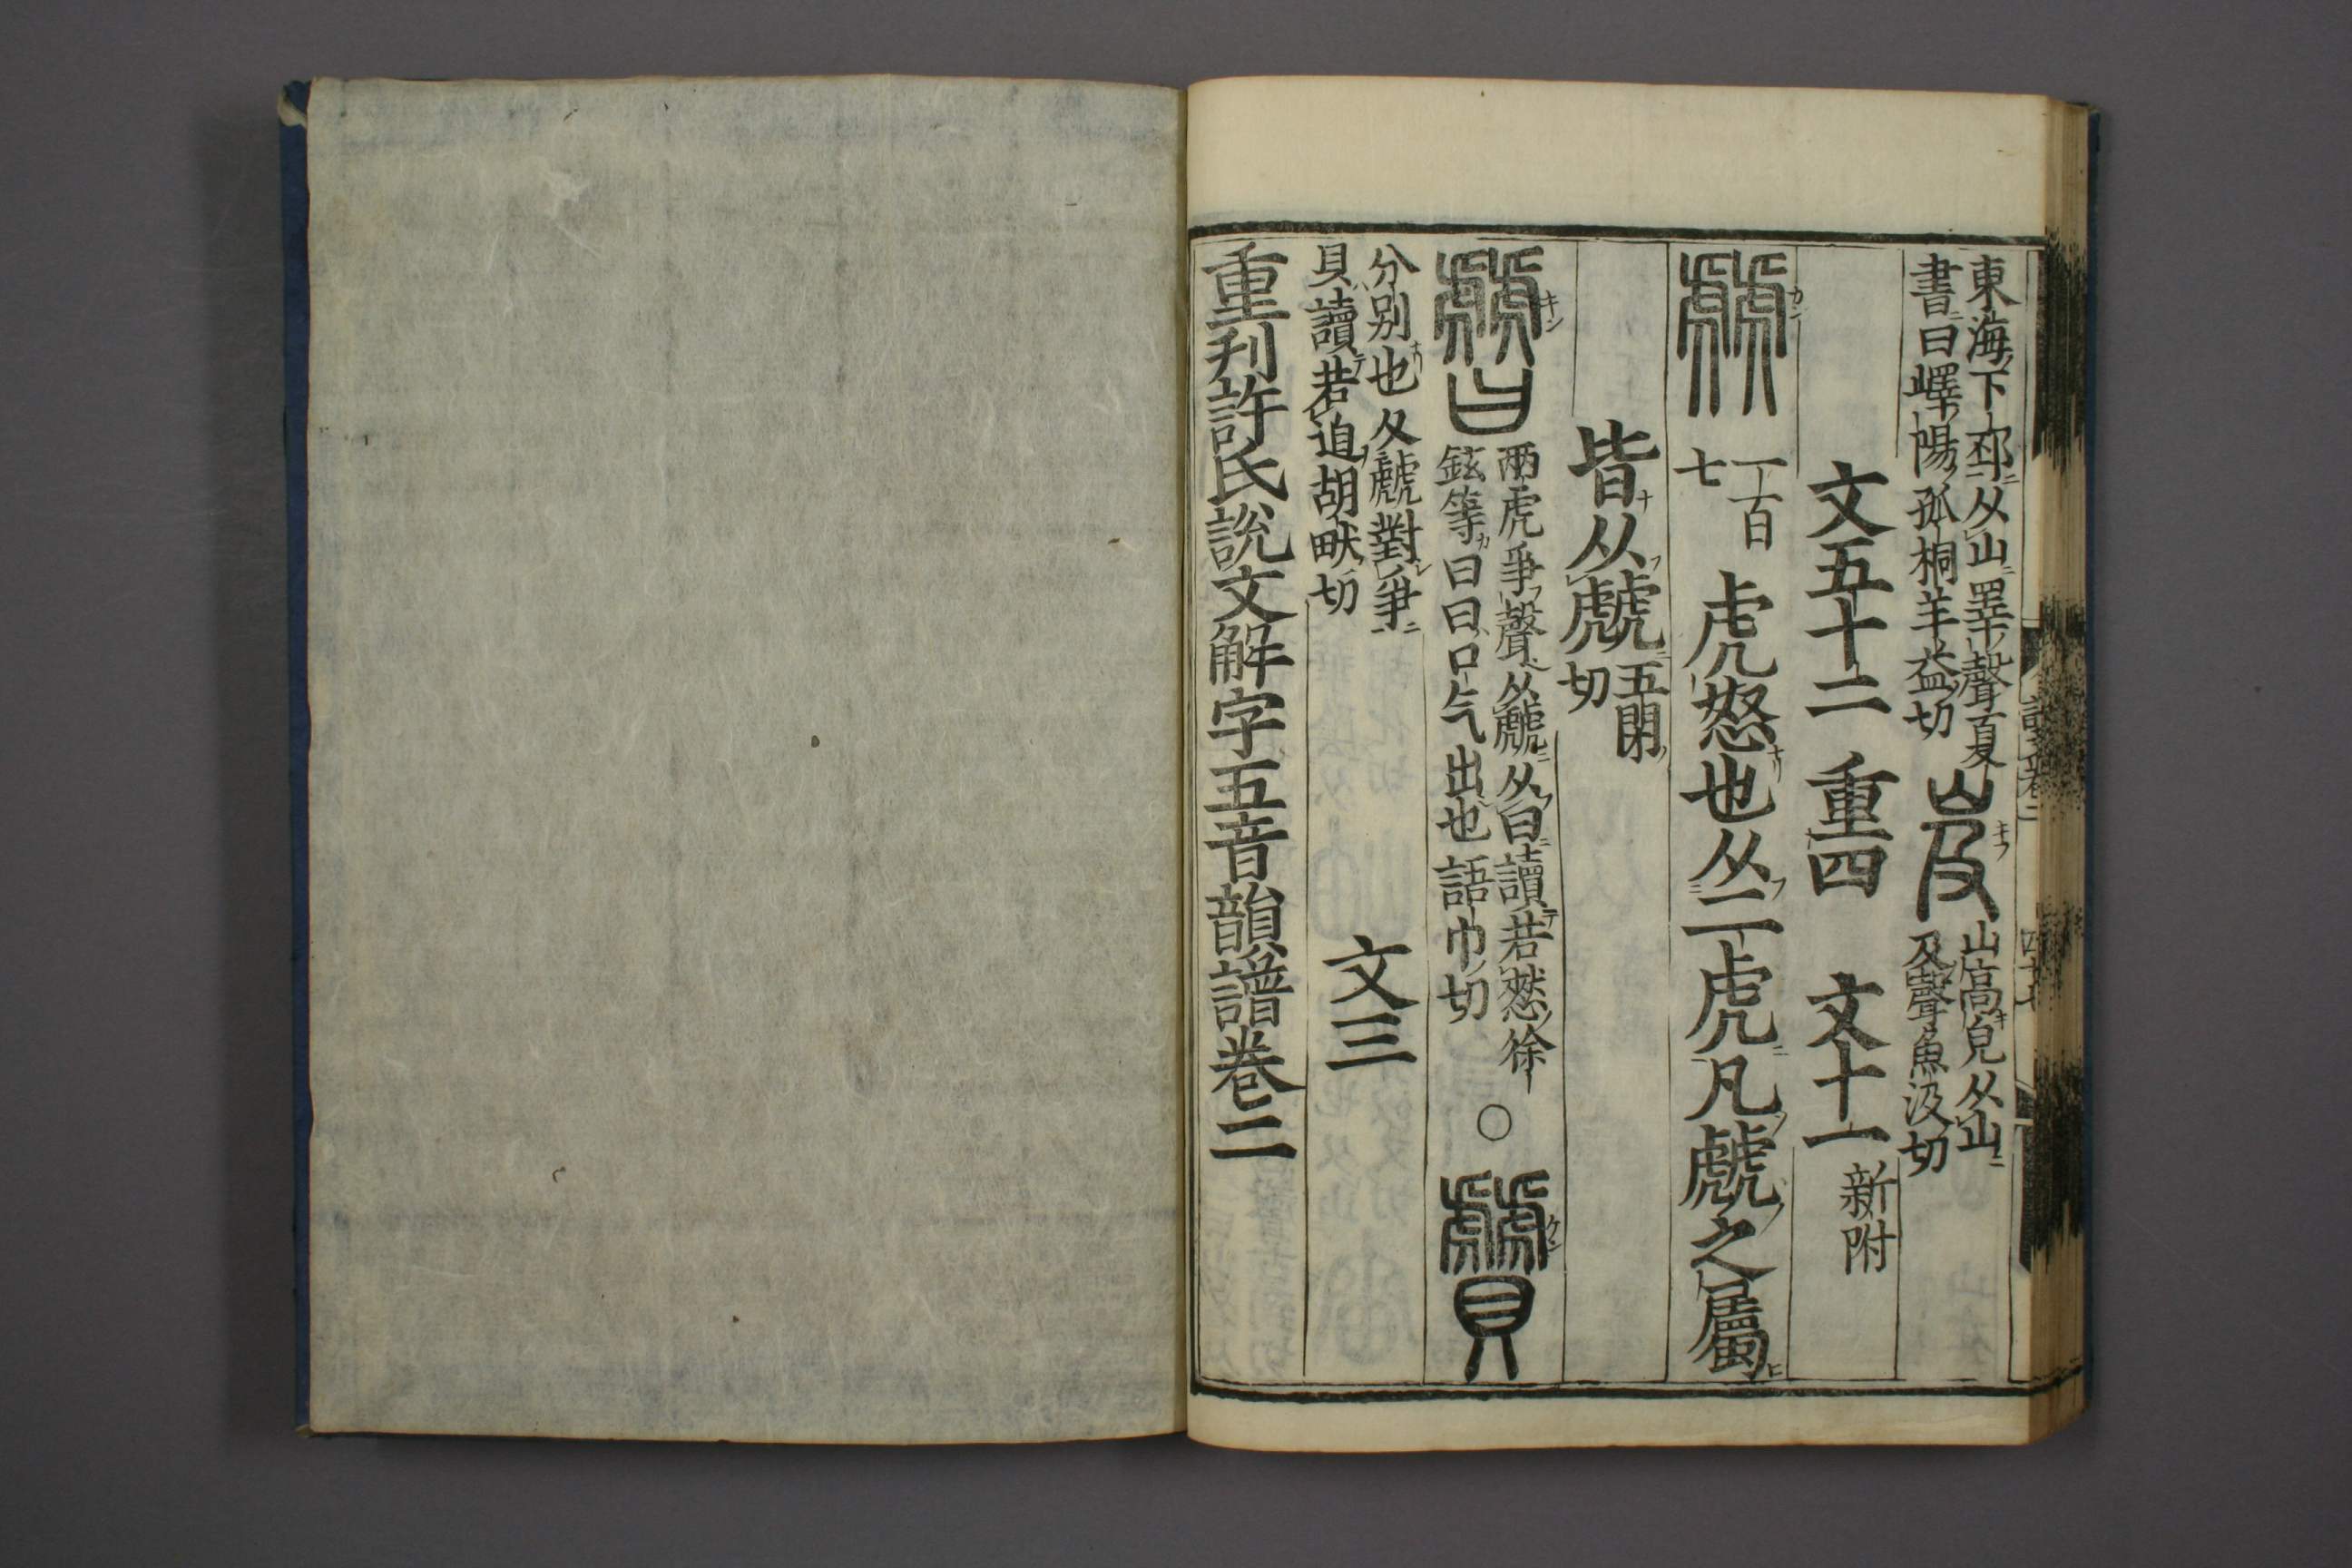 東海下邳从山睪聲夏
書曰嶧陽孤桐羊益切
岌
山高皃从山
及聲魚汲切
文五十二 重四 文十一 新附
虤
一百
七
虎怒也从二虎凡虤之屬
皆从虤
五閑
切
兩虎爭聲从虤从曰讀若憖徐
鉉等曰曰口气出也語巾切
○
分別也从虤對爭
貝讀若迴胡畎切
文三
重刊許氏說文解字五音韻譜卷二